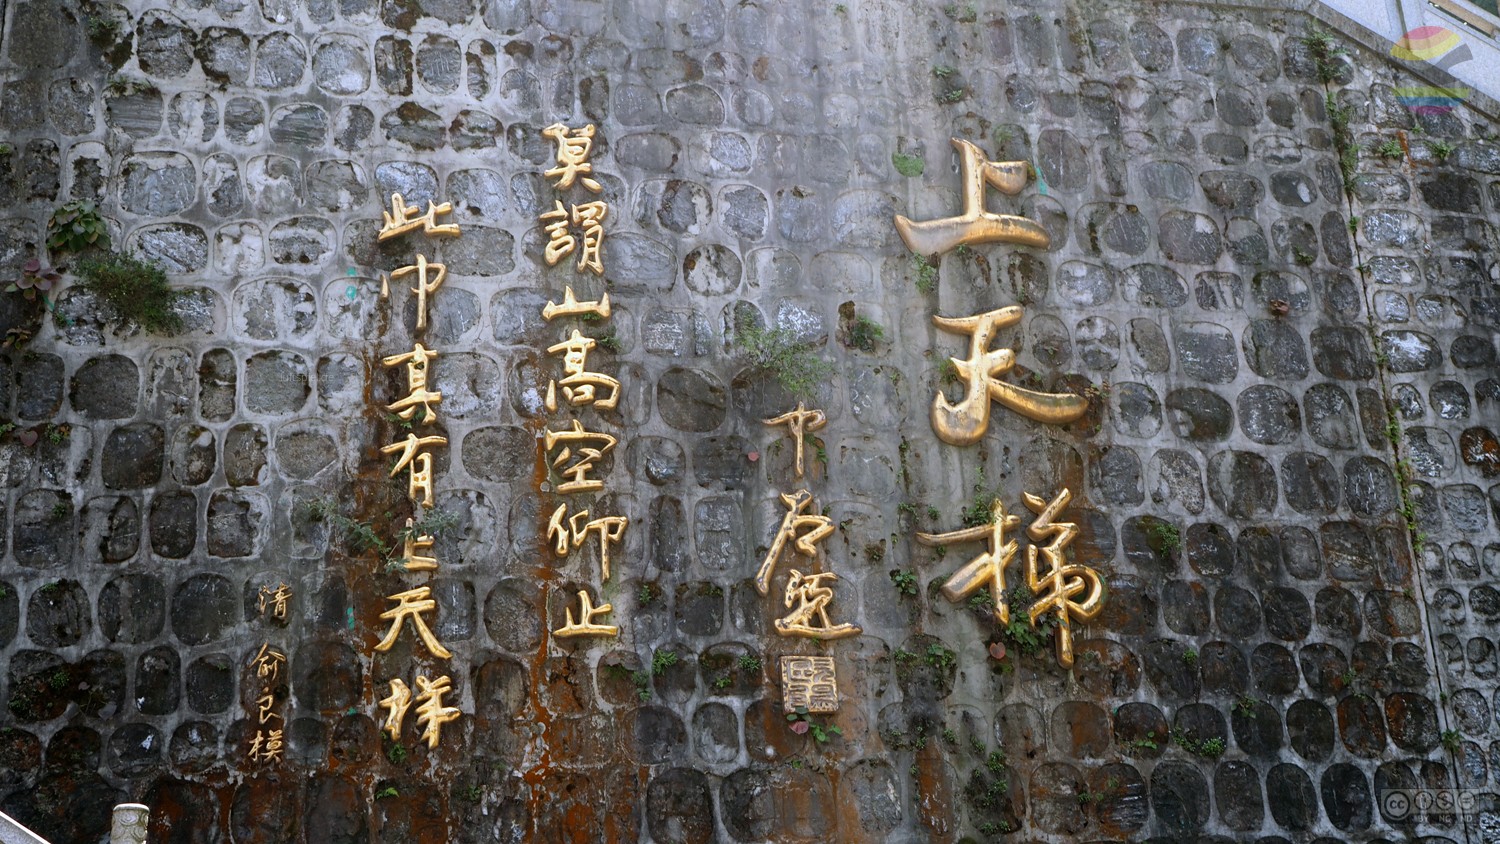 上天梯
莫謂山高空仰止
此中真有上天梯
清 俞良模